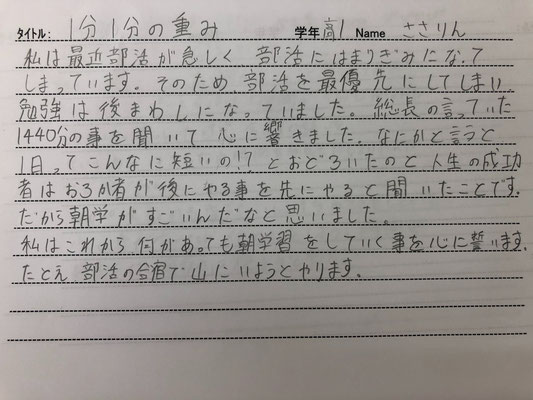 タイトル: 1分1分の重み 学年 高1 Name ささりん
私は最近部活が急しく 部活にはまりぎみになって
しまっています。そのため、部活を最優先にしてしまい
勉強は後まわしになっていました。総長の言っていた
1440分の事を聞いて 心に響きました。なにかと言うと
1日ってこんなに短いの!?とおどろいたのと人生の成功
者はおろか者が後にやる事を先にやると聞いたことです。
だから朝学がすごいんだなと思いました。
私はこれから何があっても朝学習をしていく事を心に誓います。
たとえ 部活の合宿で山にいようとやります。